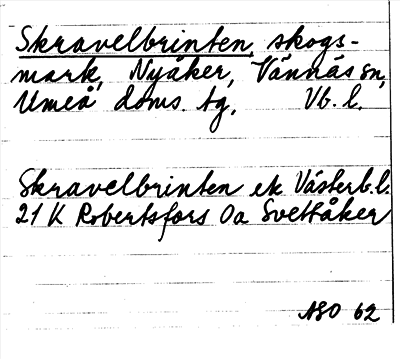 Skravelbrinten, skogs-
mark, Nyåker, Vännäs sn,
Umeå doms. tg, Vb. l.
Skravelbrinten ek Västerb. l.
21 K Robertsfors Oa Svettåker
ASO 62